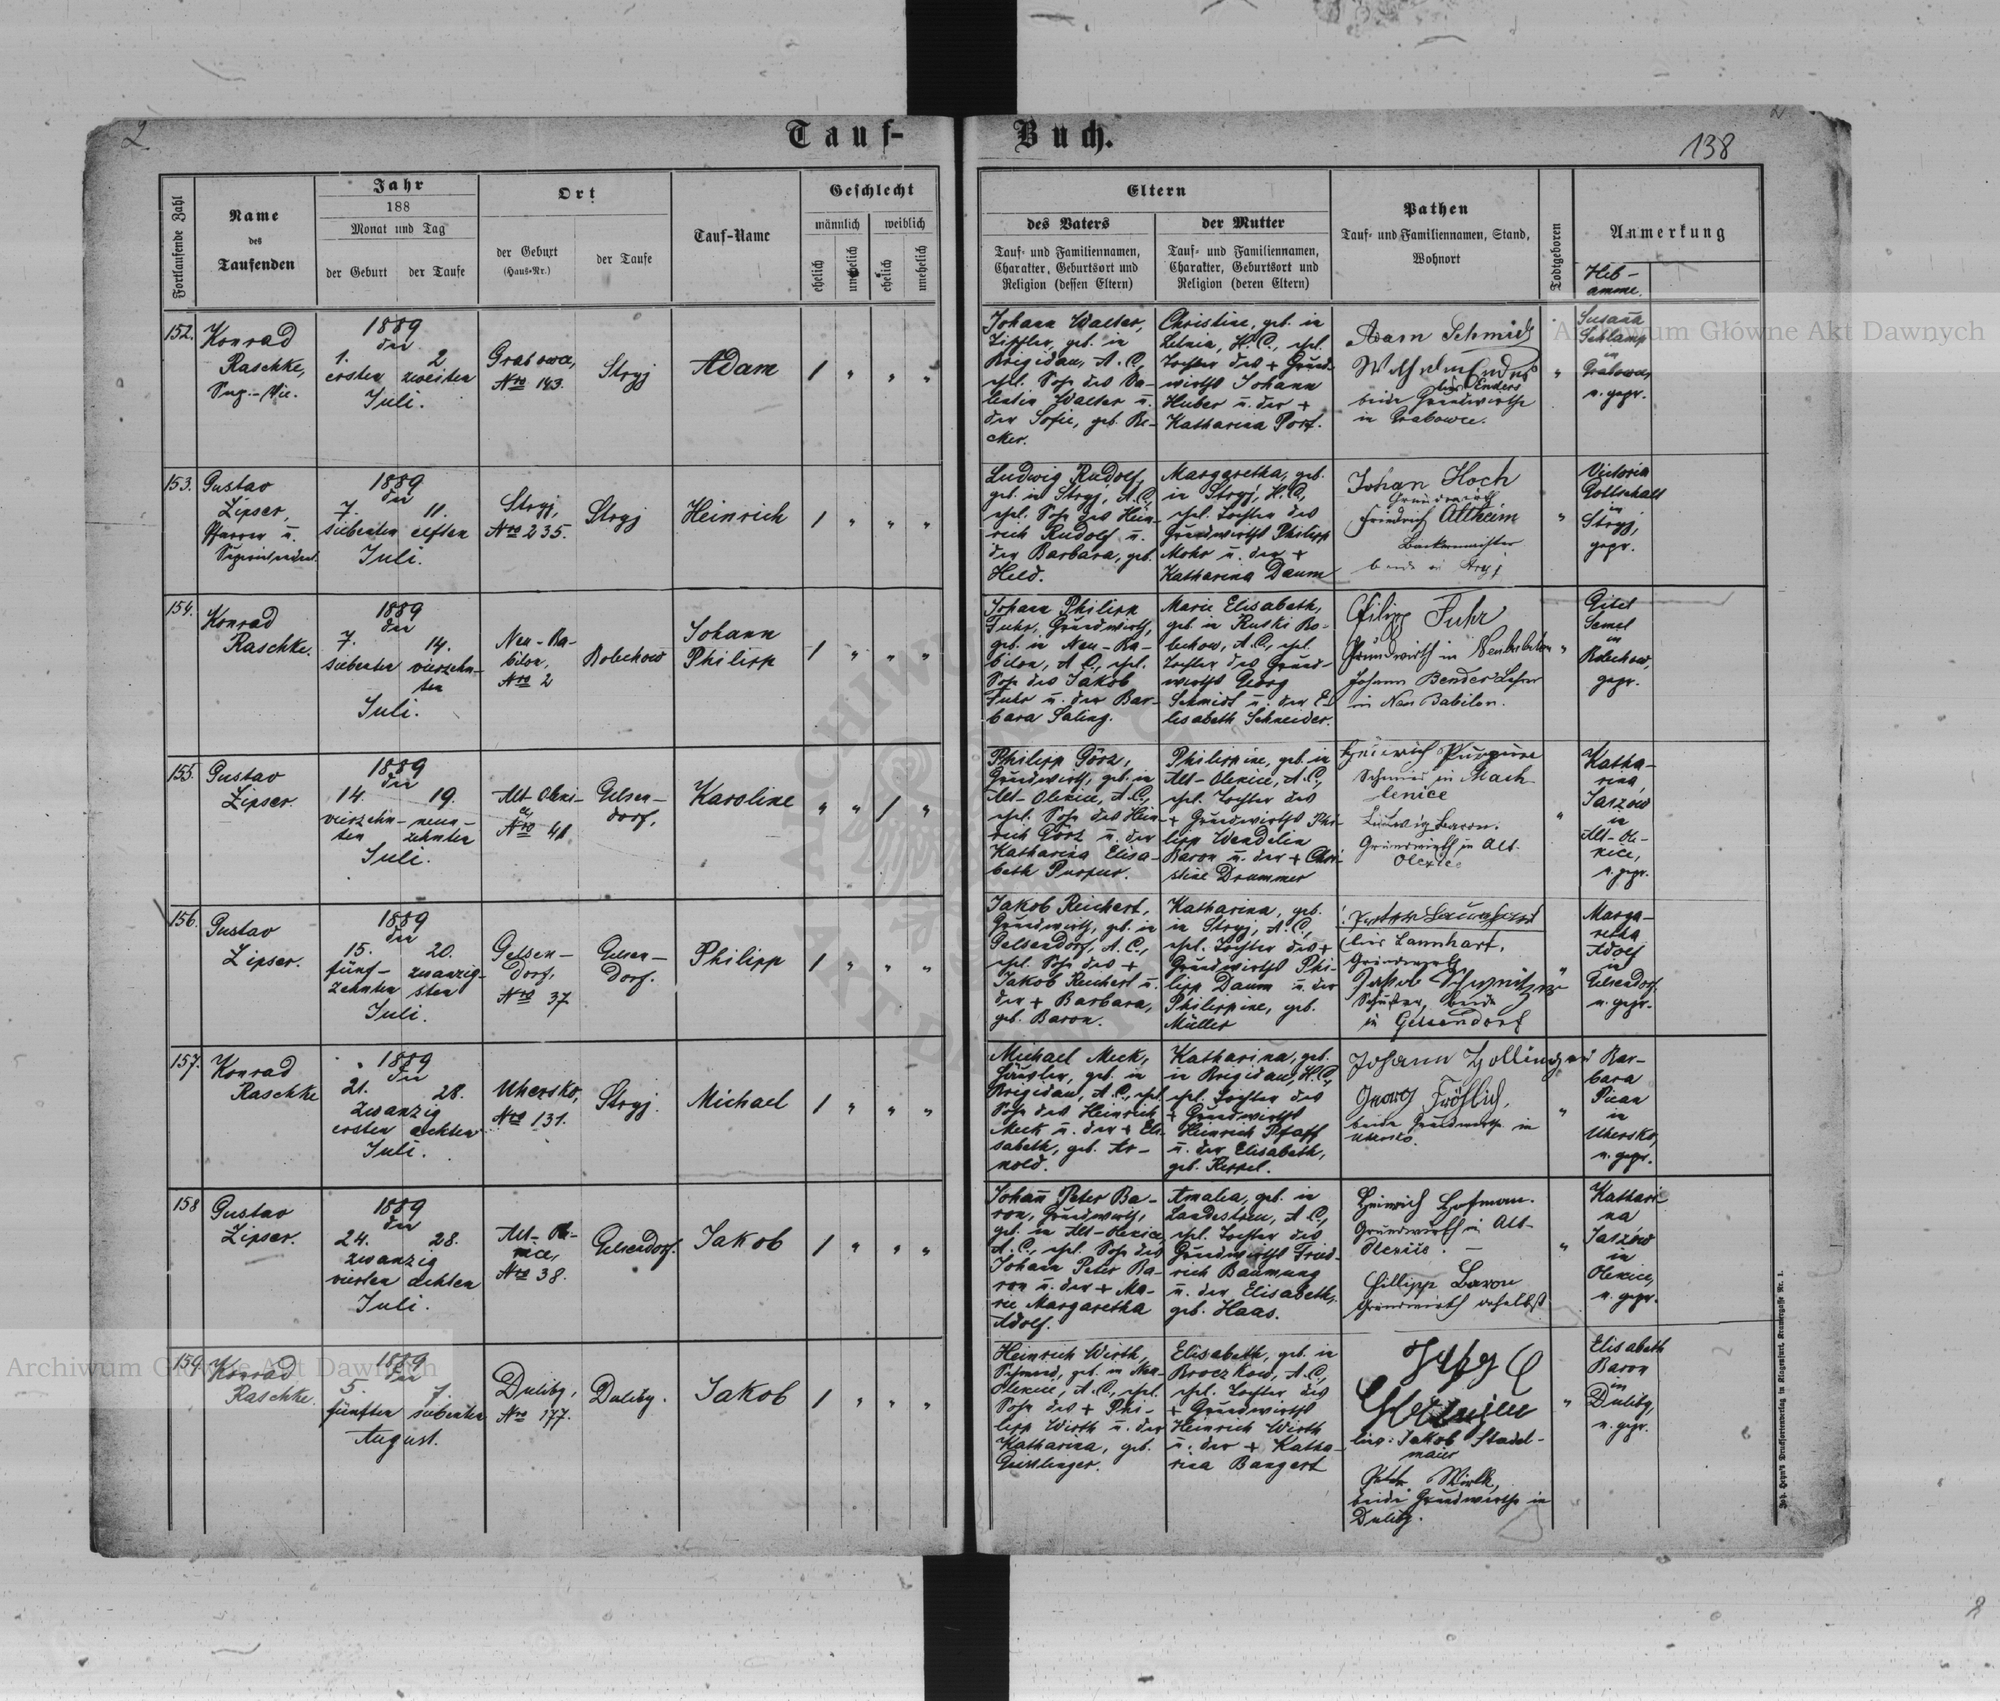 2
Tauf-
Buch.
138
Fortlaufende Zahl
Name
des
Taufenden
Jahr
188
Monat und Tag
der Geburt
der Taufe
Ort
der Geburt
(Haus-Nr.)
der Taufe
Tauf-Name
Geschlecht
männlich
weiblich
ehelich
unehelich
ehelich
unehelich
Eltern
des Vaters
Tauf- und Familiennamen,
Charakter, Geburtsort und
Religion (dessen Eltern)
der Mutter
Tauf- und Familiennamen,
Charakter, Geburtsort und
Religion (deren Eltern)
Pathen
Tauf- und Familiennamen, Stand,
Wohnort
Todtgeboren
Anmerkung
Heb-
amme.
152.
Konrad
Raschke,
1889
den
1. 2
ersten zweiten
Juli.
Grabowce,
Nro 143.
Stryj
Adam
1 " " "
Johann Walter,
geb. in
Brigidau, A. C.,
ehl. Sohn des Va-
lentin Walter u.
der Sofie, geb. Be-
cker.
Christine, geb. in
H. C., ehl.
Tochter des + Grund-
wirths Johann
Huber u. der +
Katharina Porf.
Adam Schmidt
Wilhelm Enders
beide Grundwirthe
in Grabowce.
"
Susanna
Schlamp
in
Grabowce,
n. gepr.
153.
Gustav
Zipser,
Pfarrer u.
Superintendent.
1889
den
7. 11.
siebenten elften
Juli.
Stryj,
Nro 235.
Stryj
Heinrich
1 " " "
Ludwig Rudolf,
geb. in Stryj, A. C.,
ehl. Sohn des Hein-
rich Rudolf u.
der Barbara, geb.
Held.
Margaretha, geb.
in Stryj, H. C.,
ehl. Tochter des
Grundwirths Philipp
Mohr u. der +
Katharina Daum
Johan Hoch
Grundwirth
Friedrich Altheim
Backermeister
beide in Stryj
"
Victoria
Gottschall
in
Stryj,
gepr.
154.
Konrad
Raschke.
1889
den
7. 14.
siebenten vierzehn-
ten
Juli.
Neu-Ba-
bilon,
Nro 2
Bolechow
Johann
Philipp
1 " " "
Johann Philipp
Fuhr, Grundwirth,
geb. in Neu-Ba-
bilon, A. C., ehl.
Sohn des Jakob
Fuhr u. der Bar-
bara Saling.
Marie Elisabeth,
geb. in Ruski Bo-
lechow, A. C., ehl.
Tochter des Grund-
wirths Georg
Schmidt u. der E-
lisabeth Schneider.
Filipp Fuhr
Grundwirth in Neubabilon
Johann Bender Lehrer
in Neu Babilon.
"
Gitel
Semel
in
Bolechow,
gepr.
155.
Gustav
Zipser.
1889
den
14. 19.
vierzehn- neun-
ten zehnten
Juli.
Alt-Oleni-
ce,
Nro 41
Gelsen-
dorf.
Karoline
" " 1 "
Philipp Görz,
Grundwirth, geb. in
Alt-Olexice, A. C.,
ehl. Sohn des Hein-
rich Görz u. der
Katharina Elisa-
beth Purpur.
Philippine, geb. in
Alt-Olexice, A. C.,
ehl. Tochter des
+ Grundwirths Phi-
lipp Wendelin
Baron u. der + Chri-
stine Drummer
Heinrich Purpure
Schmied in Mach
lenice
Ludwig Baron.
Grundwirth in Alt-
Olexice
"
Katha-
rina
Jaszow
in
Alt-Ole-
xice,
n. gepr.
156.
Gustav
Zipser.
1889
den
15. 20.
fünf- zwanzig-
zehnten sten
Juli.
Gelsen-
dorf.
Nro 37
Gelsen-
dorf.
Philipp
1 " " "
Jakob Reichert,
Grundwirth, geb. in
Gelsendorf, A. C.,
ehl. Sohn des +
Jakob Reichert u.
der + Barbara,
geb. Baron.
Katharina, geb.
in Stryj, A. C.,
ehl. Tochter des +
Grundwirths Phi-
lipp Daum u. der
Philippine, geb.
Müller
Lannhart,
Grundwirth
Jakob
Schuster, beide
in Gelsendorf
"
Marga-
retha
Adolf
in
Gelsendorf
n. gepr.
157.
Konrad
Raschke
1889
den
21. 28.
zwanzig
ersten achten
Juli.
Uhersko,
Nro 131.
Stryj.
Michael
1 " " "
Michael Meck,
Häusler, geb. in
Brigidau, A. C., ehl.
Sohn des Heinrich
Meck u. der + Eli-
sabeth, geb. Ar-
nold.
Katharina, geb.
in Brigidau, H. C.,
ehl. Tochter des
+ Grundwirths
Heinrich Pfaff
u. der Elisabeth,
geb. Keppel.
Johann Zollinger
Georg Fröhlich,
beide Grundwirthe in
Uhersko.
"
Bar-
bara
in
Uhersko,
n. gepr.
158
Gustav
Zipser.
1889
den
24. 28.
zwanzig
vierten achten
Juli.
Alt-Ole-
xice,
Nro 38.
Gelsendorf.
Jakob
1 " " "
Johann Peter Ba-
ron, Grundwirth,
geb. in Alt-Olexice,
A. C., ehl. Sohn des
Johann Peter Ba-
ron u. der + Ma-
rie Margaretha
Adolf.
Amalia, geb. in
Landestreu, A. C.,
ehl. Tochter des
Grundwirths Fried-
rich Baumung
u. der Elisabeth,
geb. Haas.
Heinrich Hofman.
Grundwirth in Alt-
Olexice. —
Fillipp Baron
Grundwirth daselbst
"
Kathari-
na
Jaszow
in
Olexice,
n. gepr.
159.
Konrad
Raschke.
1889
den
5. 7.
fünften siebenten
August.
Duliby,
Nro 177.
Duliby.
Jakob
1 " " "
Heinrich Wirth,
Schmied, geb. in Neu-
Olexice, A. C., ehl.
Sohn des + Phi-
lipp Wirth u. der
Katharina, geb.
Geisslinger.
Elisabeth, geb. in
Broczkow, A. C.,
ehl. Tochter des
+ Grundwirths
Heinrich Wirth
u. der + Katha-
rina Bangert
lies: Jakob Stadel-
maier
Wirth,
beide Grundwirthe in
Duliby.
"
Elisabeth
Baron
in
Duliby,
n. gepr.
Joh. Heyn's Drucksortenverlag in Klagenfurt, Kramergasse Nr. 1.
Archiwum Główne Akt Dawnych
Archiwum Główne Akt Dawnych
8